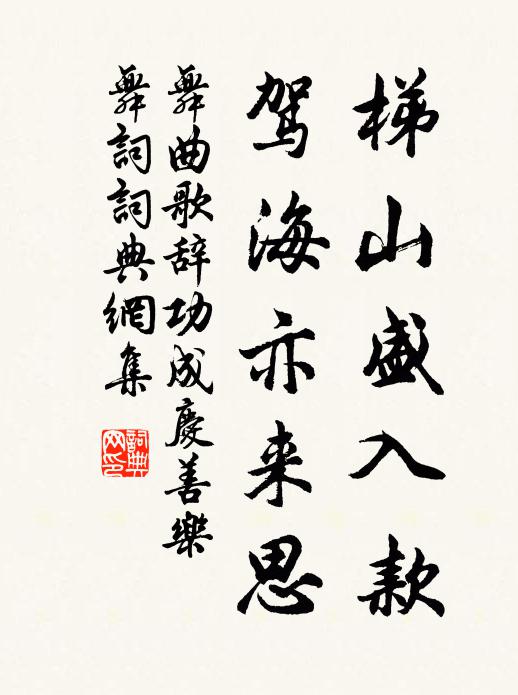 梯山盛入款
驾海亦来思
舞曲歌辞功成慶善樂
舞詞詞典網集
詞典网印